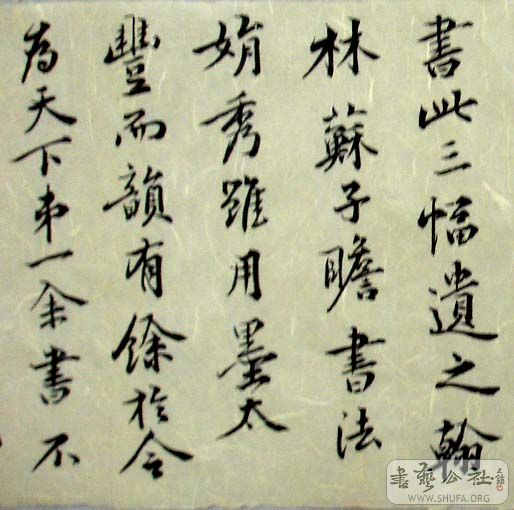 書此三幅遺之翰
林蘇子瞻書法
娟秀雖用墨太
豐而韻有餘於今
為天下弟一余書不
書藝公社
WWW.SHUFA.ORG